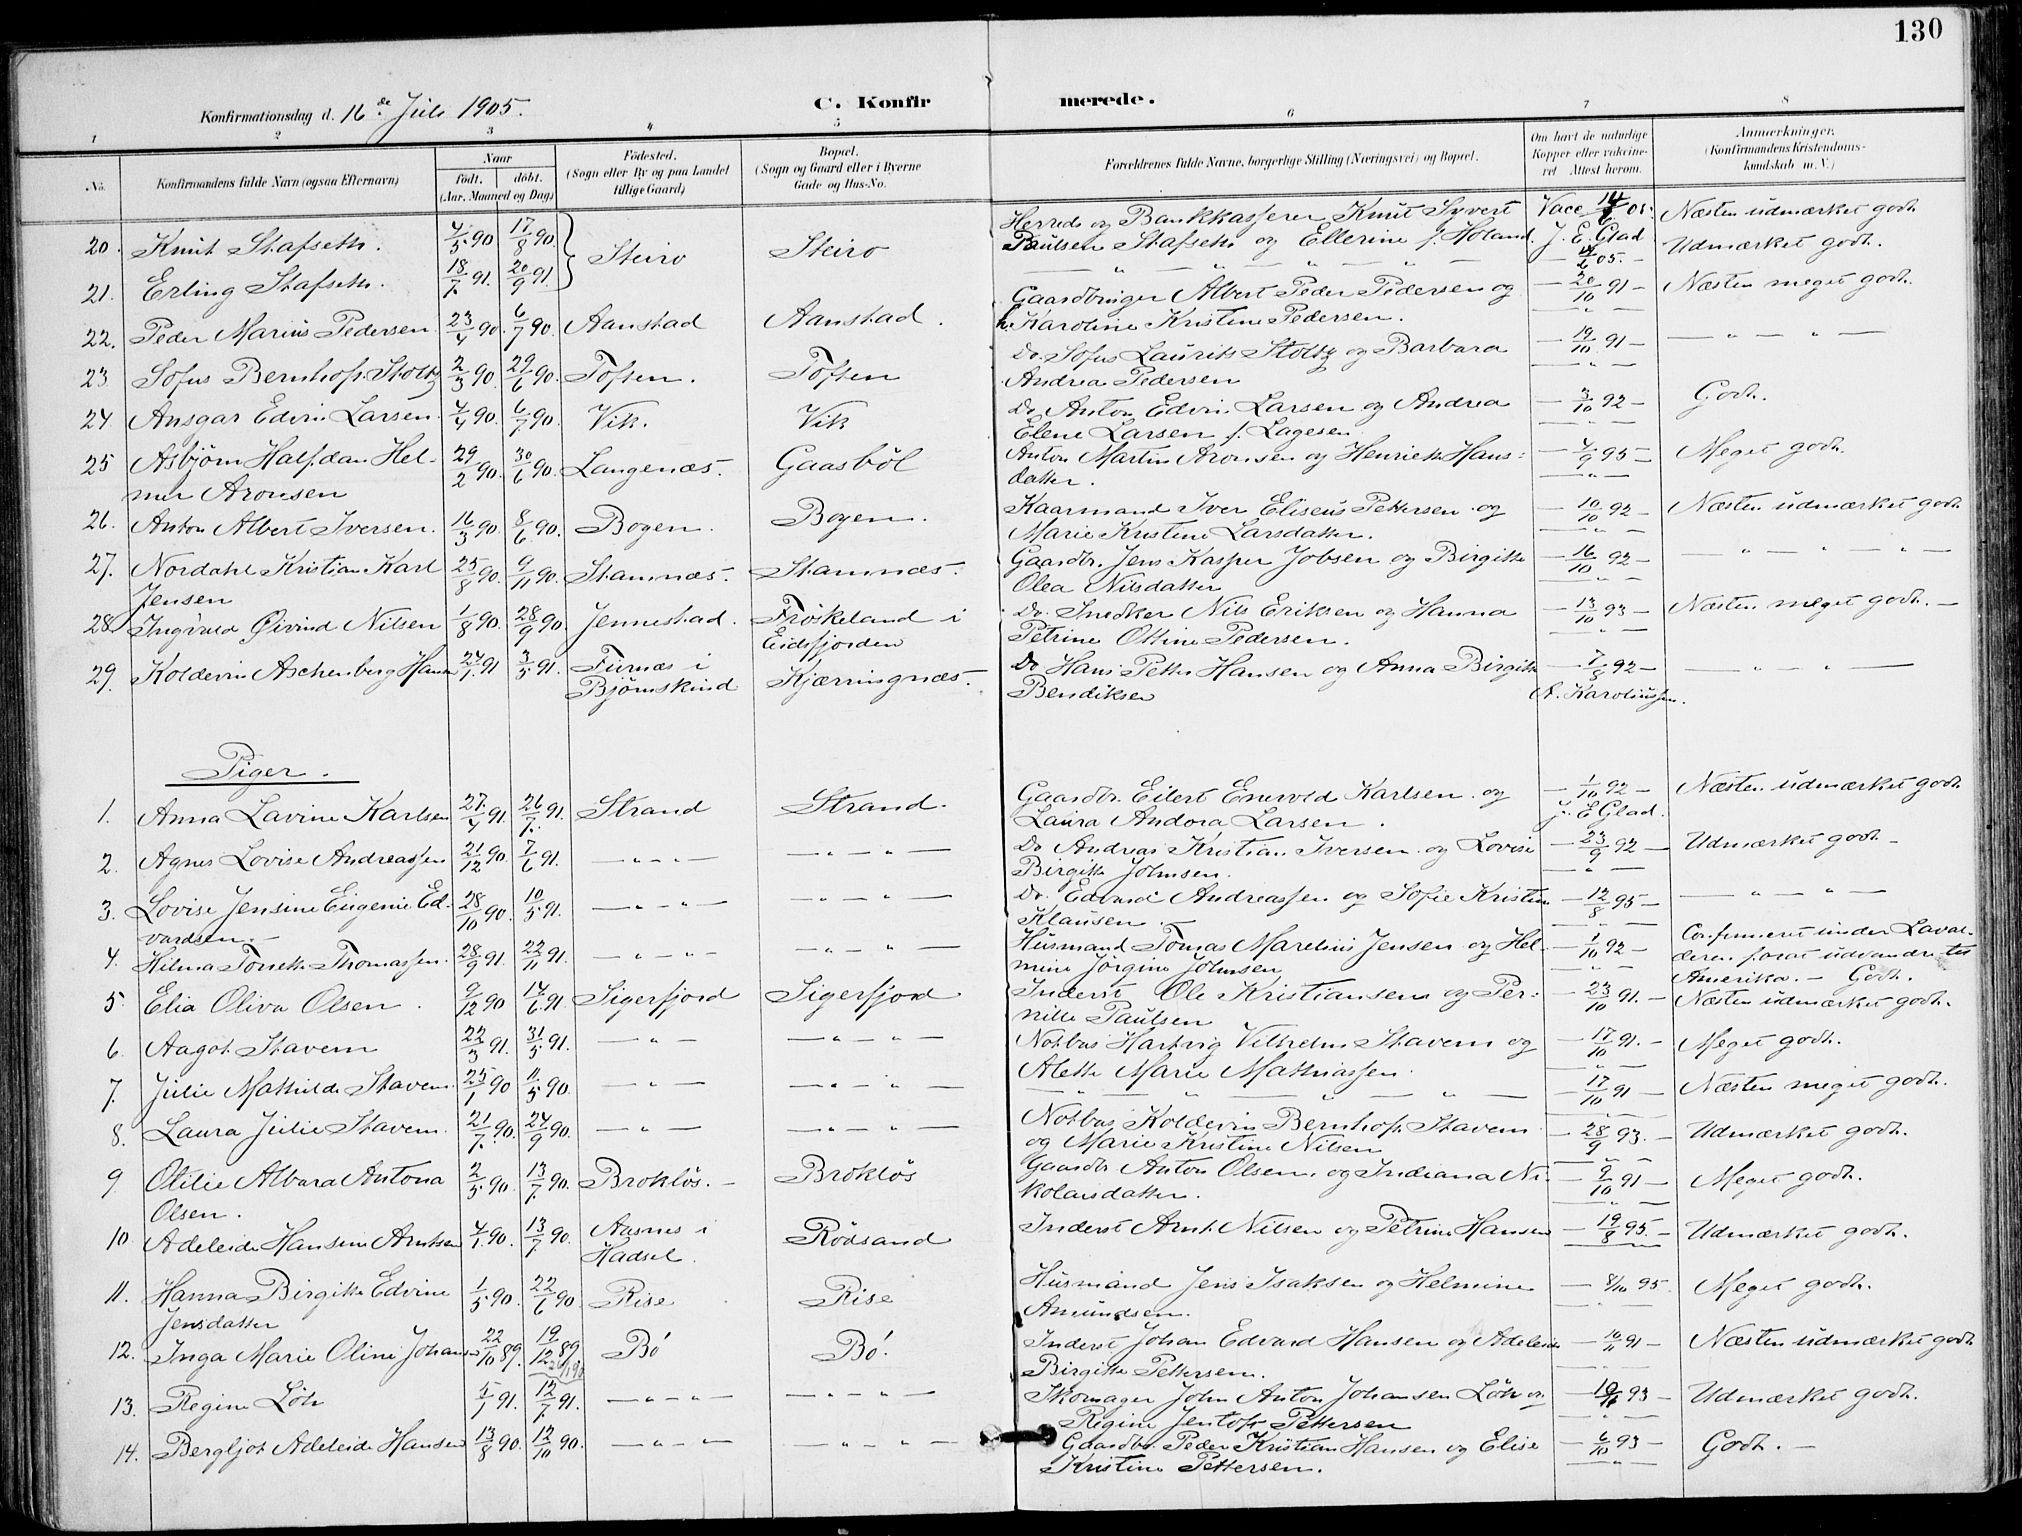 130
Konfirmationsdag d. 16de Juli 1905.
C. Konfirmerede.
1 2 3 4 5 6 7 8
No. Konfirmandens fulde Navn (ogsaa Efternavn) Naar født. døbt. (Aar, Maaned og Dag) Fødested. (Sogn eller By og paa Landet tillige Gaard) Bopæl. (Sogn og Gaard eller i Byerne Gade og Hus-No. Forældrenes fulde Navne, borgerlige Stilling (Næringsvei) og Bopæl. Om havt de naturlige Kopper eller vaccineret Attest herom. Anmerkninger. (Konfirmandens Kristendomskundskab m. V.)
20. Knut Stafseth. 4/5 90 17/8 90 Steiro Steiro Herreds og Bankkasserer Knut Syvert Paulsen Stafseth og Ellerine f. Holand. Vacc 14/6 05. J. E. Glad Næsten udmærket godt
21. Erling Stafseth. 18/7 91 20/9 91 — " — " — 14/6 05. — Udmærket godt.
22. Peder Marius Pedersen 23/4 90. 6/7 90 Aanstad Aanstad. Gaardbruger Albert Peder Pedersen og h. Karoline Kristine Pedersen. — 20/10 91 — Næsten meget godt.
23 Sofus Bernhoft Stoltz 2/3 90 29/6 90. Toften. Toften Do. Sofus Laurits Stoltz og Barbara Andrea Pedersen — 19/10 91 — — " — " —
24. Ansgar Edvin Larsen. 4/4 90. 6/7 90. Vik. Vik Do Anton Edvin Larsen og Andrea Elene Larsen f. Lagesen — 3/10 92 — Godt.
25 Asbjørn Halfdan Helmer Aronsen 29/2 90. 30/6 90. Langenæs. Gaasbøl Anton Martin Aronsen og Henriette Hansdatter. — 4/9 95 — Meget godt.
26. Anton Albert Iversen. 16/3 90. 8/6 90. Bogen. Bogen. Kaarmand Iver Eliseus Pettersen og Marie Kristine Larsdatter. — 10/10 92 — Næsten udmærket godt
27. Nordahl Kristian Karl Jensen 25/8 90. 9/11 90. Stamnæs. Stamnæs. Gaardbr. Jens Kasper Jobsen og Birgitte Olea Nilsdatter — 16/10 92 — — " — " —
28. Ingvald Øivind Nilsen 1/8 90. 28/9 90. Jennestad. Frøskeland i Eidsfjorden Do. Snedker Nils Eriksen og Hanna Petrine Otline Pedersen. — 13/10 93 — Næsten meget godt. —
29. Koldevin Aschenberg Hansen 24/1 91 3/5 91. Furnæs i Bjørnskind Kjærringnæs. Do Hans Petter Hansen og Anna Birgitte Bendiksen — 7/8 92 — A. Karoliussen. — " — " —
Piger.
1. Anna Lavine Karlsen 27/4 91. 26/7 91. Strand Strand. Gaardbr. Eilert Enevold Karlsen og Laura Andora Larsen. — 1/10 92 — J. E Glad. Næsten udmærket godt
2. Agnes Lovise Andreassen 21/12 90. 7/6 91. — " — " — — " — " — Do Andreas Kristian Iversen og Lovise Birgitte Johnsen. — 23/9 92 — Udmærket godt —
3. Lovise Jensine Eugenie Edvardsen. — 28/10 90. 10/5 91. — " — " — — " — " — Do. Edvard Andreassen og Sofie Kristine Klausen. — — 12/8 95 — — " — " —
4. Hilma Tonette Thomassen. 28/9 91. 22/11 91. — " — " — — " — " — Husmand Tomas Marelius Jensen og Helmine Jörgine Johnsen — 1/10 92 — Confirmeret under Lavalderen forat udvandre til Amerika. — Godt.
5. Elia Oliva Olsen. 9/12 90 14/6 91. Sigerfjord Sigerfjord Inderst Ole Kristiansen og Pernille Paulsen — 23/10 91. — Næsten udmærket godt.
6. Aagot Stavem 22/3 91. 31/5 91. — " — — " — " — Notbas Hartvig Vilhelm Stavem og Alette Marie Mathiassen. — 17/10 91. — Meget godt.
7. Julie Mathilde Stavem. 25/1 90 11/5 90. — " — — " — " — — " — " — " — — 17/10 91 — Næsten meget godt.
8. Laura Julie Stavem. 21/7 90. 24/9 90. — " — — " — " — Notbas Koldevin Bernhoft Stavem og Marie Kristine Nilsen — 28/9 93. — Udmærket godt.
9 Otilie Albara Antona Olsen. 2/5 90. 13/7 90. Brokløs. — Brokløs Gaardbr Anton Olsen. og Indiana Nikolaisdatter. — 9/10 91 — Meget godt.
10 Adeleide Hansine Arntsen 4/1 90. 13/7 90. Aasnes i Hadsel. Rødsand Inderst Arnt Nilsen og Petrine Hansen — 19/8 95. — Udmærket godt.
11. Hanna Birgitte Edvine Jensdatter 1/5 90. 22/6 90. Rise Rise Husmand Jens Isaksen og Helmine Amundsen. — 8/10 95. Meget godt.
12. Inga Marie Oline Johansen 22/10 89. 19/12 89 Bø Bø. Inderst Johan Edvard Hansen og Adeleide Birgitte Pettersen. — 91 — Næsten udmærket godt
13. Regine Löh 5/1 91. 12/7 91. — " — " — — " — " — Skomager John Anton Johansen Löh og Regine Jentoft Pettersen — 93 — Udmærket godt.
14. Bergljot Adeleide Hansen 13/8 90. 12/10 90. — " — " — — " — " — Gaardbr. Peder Kristian Hansen og Elise Kristine Pettersen. — 6/10 93 — Godt. —